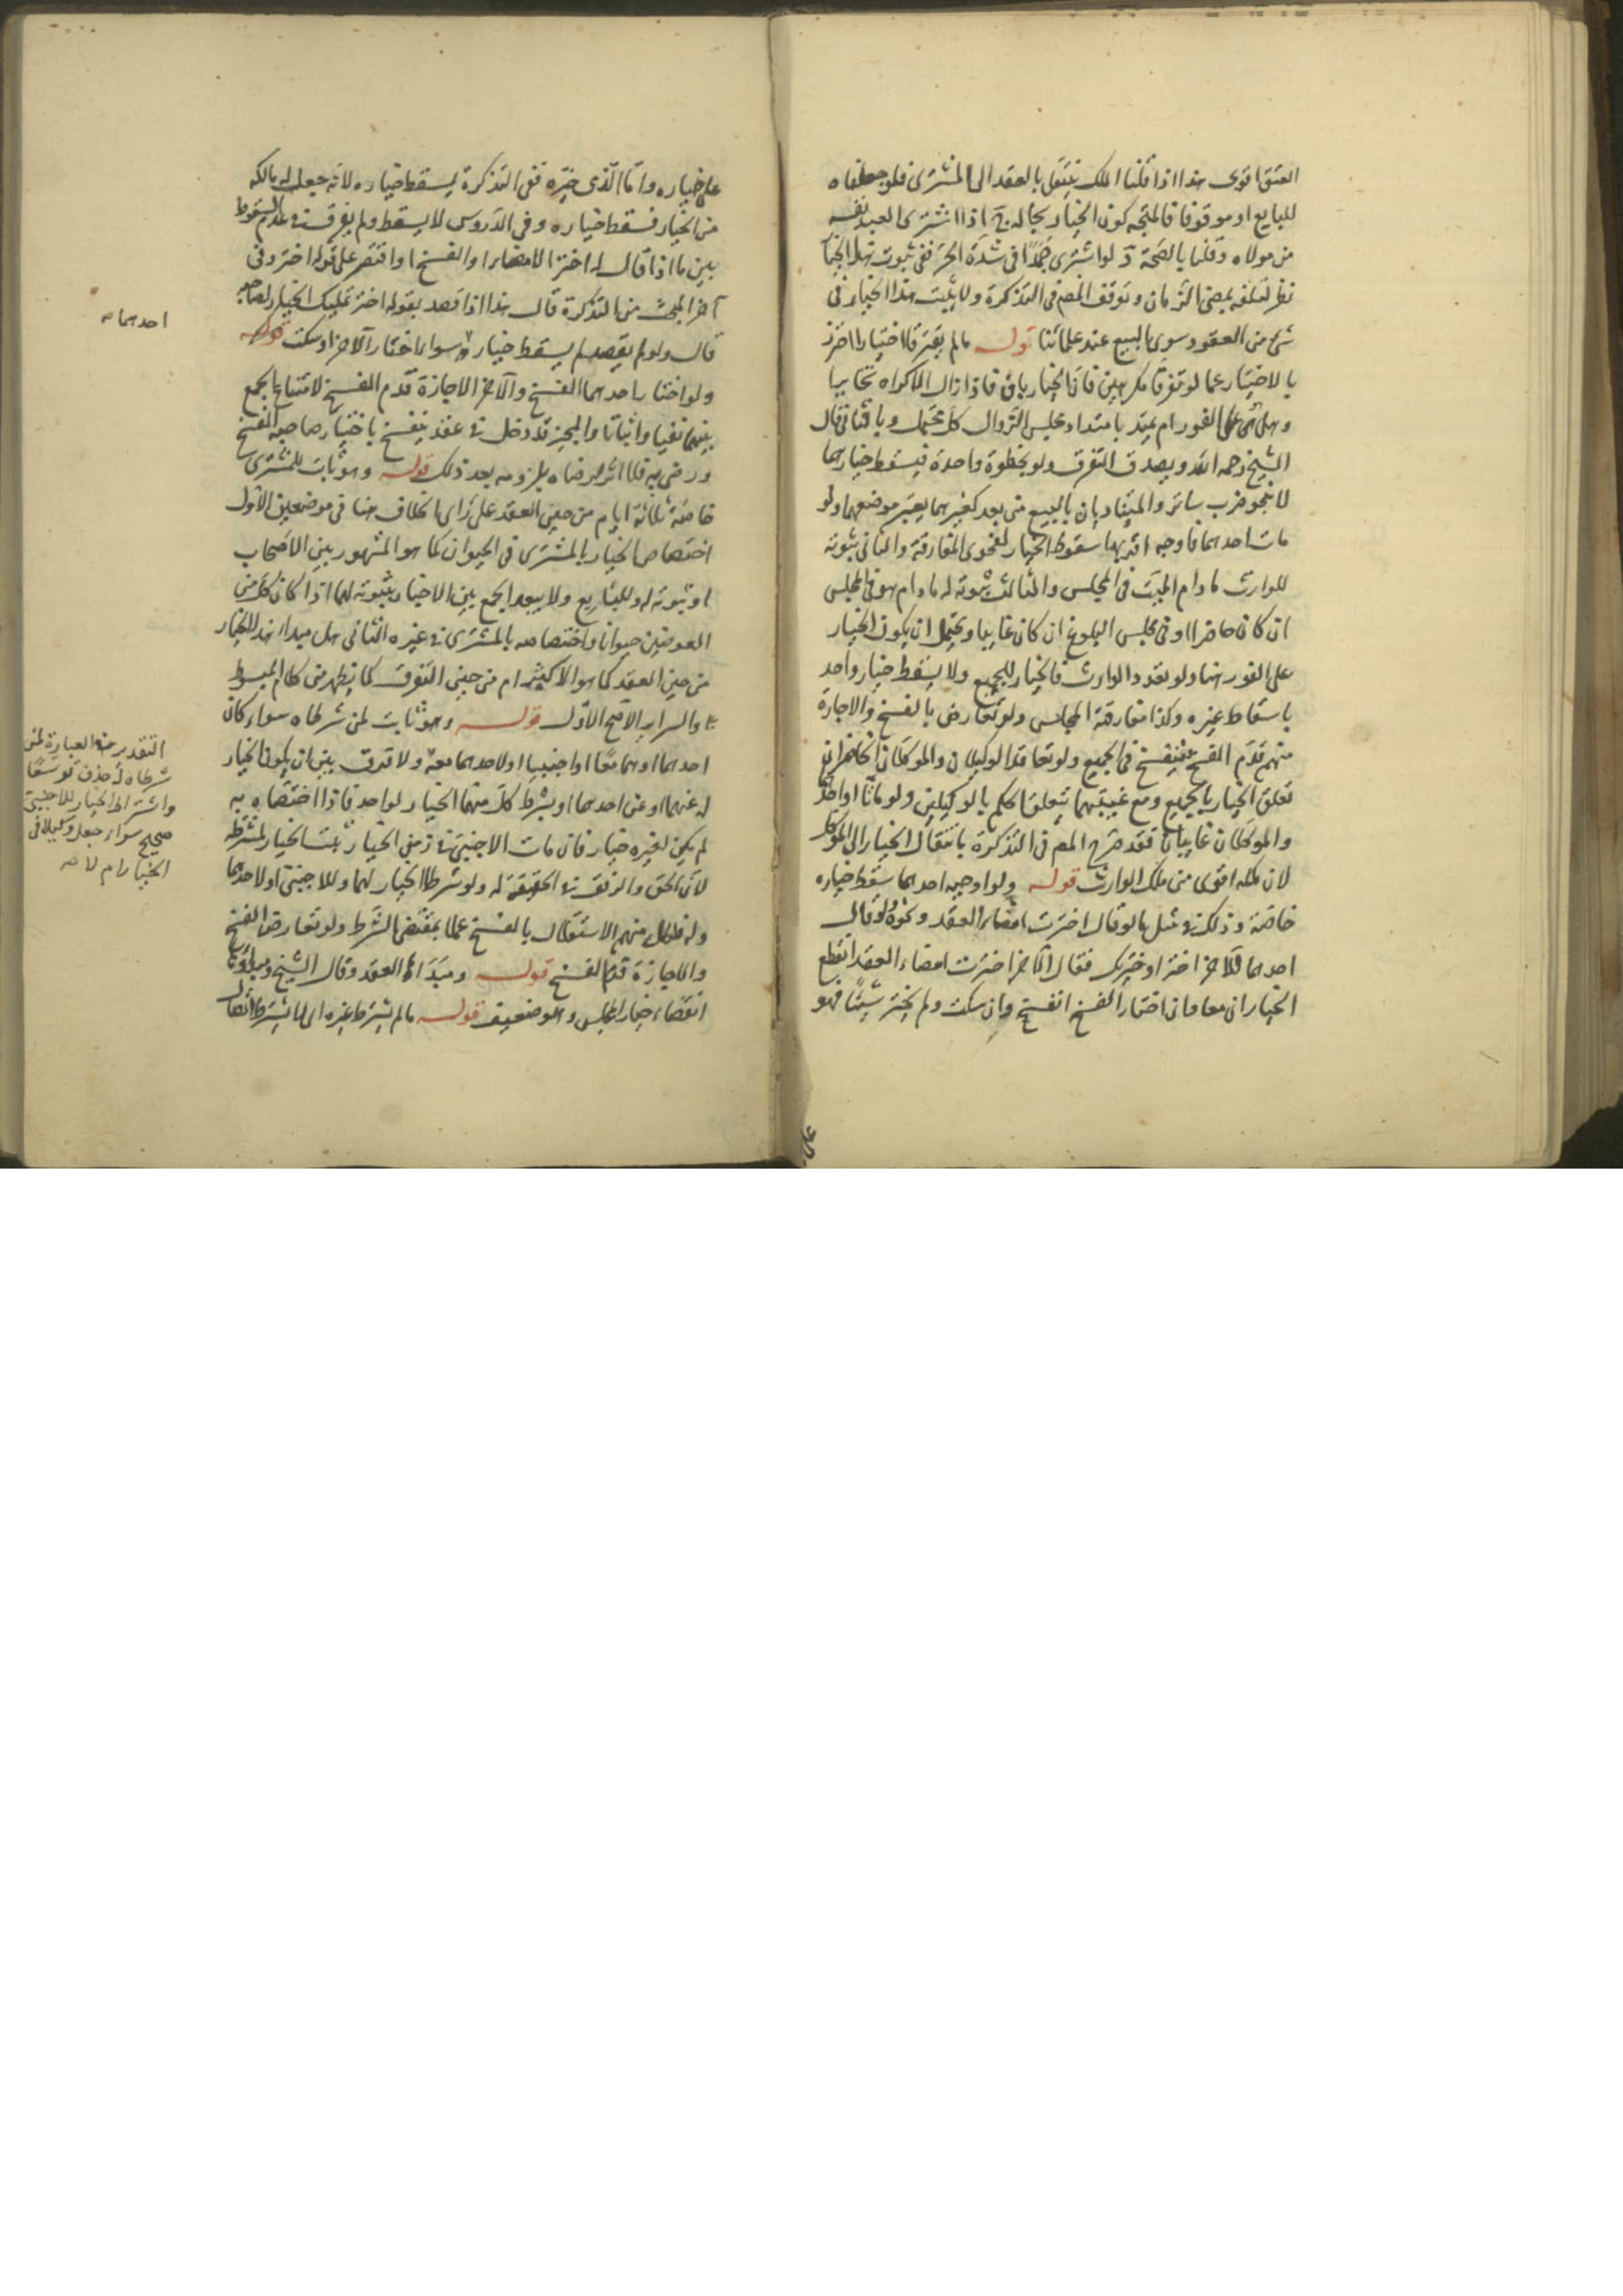 العتق اقوى هذا اذا قلنا الملك ينتقل بالعقد الى المشترى فلو جعلناه
للبايع او موقوفا فالمتجه كون الخيار بحاله ج اذا اشترى العبد نفسه
من مولاه وقلنا بالصحة د لو اشترى جمدا فى شدة الحر ففى ثبوت هذا الخيار
نظر لتلفه بمضى الزمان وتوقف المص فى التذكرة ولا يثبت هذا الخيار فى
شئ من العقود سوى البيع عند علمائنا قوله ما لم يفترقا اختيارا احترز
بالاختيار عما لو تفرقا مكرهين فان الخيار باق فاذا زال الاكراه تخايرا
وهل هى على الفور ام يمتد بامتداد مجلس الزوال كل محتمل وبالثانى قال
الشيخ رحمه الله ويصدق التفرق ولو بخطوة واحدة فيسقط خيارهما
لا بنحو ضرب ساتر والمتناديان بالبيع من بعد كغيرهما يعتبر موضعهما ولو
مات احدهما فاوجه اقربها سقوط الخيار لفحوى المفارقة والثانى ثبوته
للوارث ما دام الميت فى المجلس والثالث ثبوته له ما دام هو فى المجلس
ان كان حاضرا او فى مجلس البلوغ ان كان غايبا ويحتمل ان يكون الخيار
على الفور هنا ولو تعدد الوارث فالخيار للجميع ولا يسقط خيار واحد
باسقاط غيره وكذا مفارقة المجلس ولو تعارض بالفسخ والاجازة
منهم قدم الفسخ فينفسخ فى الجميع ولو تعاقد الوكيلان والموكلان حاضران
تعلق الخيار بالجميع ومع غيبتهما يتعلق الحكم بالوكيلين ولو ماتا او احدهما
والموكلان غايبان فقد صرح المص فى التذكرة بانتقال الخيار الى الموكل
لان ملكه اقوى من ملك الوارث قوله ولو اوجبه احدهما سقط خياره
خاصة وذلك فى مثل ما لو قال اخترت امضاء العقد ونحوه ولو قال
احدهما للآخر اختر او خيرتك فقال الآخر اخترت امضاء العقد انقطع
الخياران معا وان اختار الفسخ انفسخ وان سكت ولم يختر شيئا فهو
على خياره واما الذى خيره ففى التذكرة يسقط خياره لانه جعل له مالكه
من الخيار فسقط خياره وفى الدروس لا يسقط ولم يفرق فى عدم السقوط
بين ما اذا قال له اختر الامضاء او الفسخ او اقتصر على قوله اختر وفى
آخر البحث من التذكرة قال هذا اذا قصد بقوله اختر تمليك الخيار لصاحبه
قال ولو لم يقصد لم يسقط خياره سواء اختار الآخر او سكت قوله
ولو اختار احدهما الفسخ والآخر الاجازة قدم الفسخ لامتناع الجمع
بينهما نفيا واثباتا والمجيز قد دخل فى عقد ينفسخ باختيار صاحبه الفسخ
ورضى به فلا اثر لرضاه بلزومه بعد ذلك قوله وهو ثابت للمشترى
خاصة ثلاثة ايام من حين العقد على راى الخلاف هنا فى موضعين الاول
اختصاص الخيار بالمشترى فى الحيوان كما هو المشهور بين الاصحاب
او ثبوته له وللبايع ولا يبعد الجمع بين الاخبار بثبوته لهما اذا كان كل من
العوضين حيوانا واختصاصه بالمشترى فى غيره الثانى هل مبداء هذا الخيار
من حين العقد كما هو الاكثر ام من حين التفرق كما يظهر من كلام المبسوط
والسراير الاصح الاول قوله وهو ثابت لمن شرطاه سواء كان
احدهما او هما معا او اجنبيا او لاحدهما معه ولا فرق بين ان يكون الخيار
له عنهما او عن احدهما او يشرط كل منهما الخيار لواحد فاذا اختصا به
لم يكن لغيره خيار فان مات الاجنبى فى زمن الخيار ثبت الخيار لمشترطه
لان الحق والرفق فى الحقيقة له ولو شرطا الخيار لهما وللاجنبى او لاحدهما
وله فلكل منهم الاستقلال بالفسخ عملا بمقتضى الشرط ولو تعارض الفسخ
والاجازة قدم الفسخ قوله ومبداه العقد وقال الشيخ
انقضاء خيار المجلس وهو ضعيف قوله ما لم يشترط غيره اى ما لم يشترط
احدهما صه
التقدير من العبارة لمن
شرطاه له حذف توسعا
واشتراط الخيار للاجنبى
صحيح سواء جعل وكيلا فى
الخيار ام لا صه